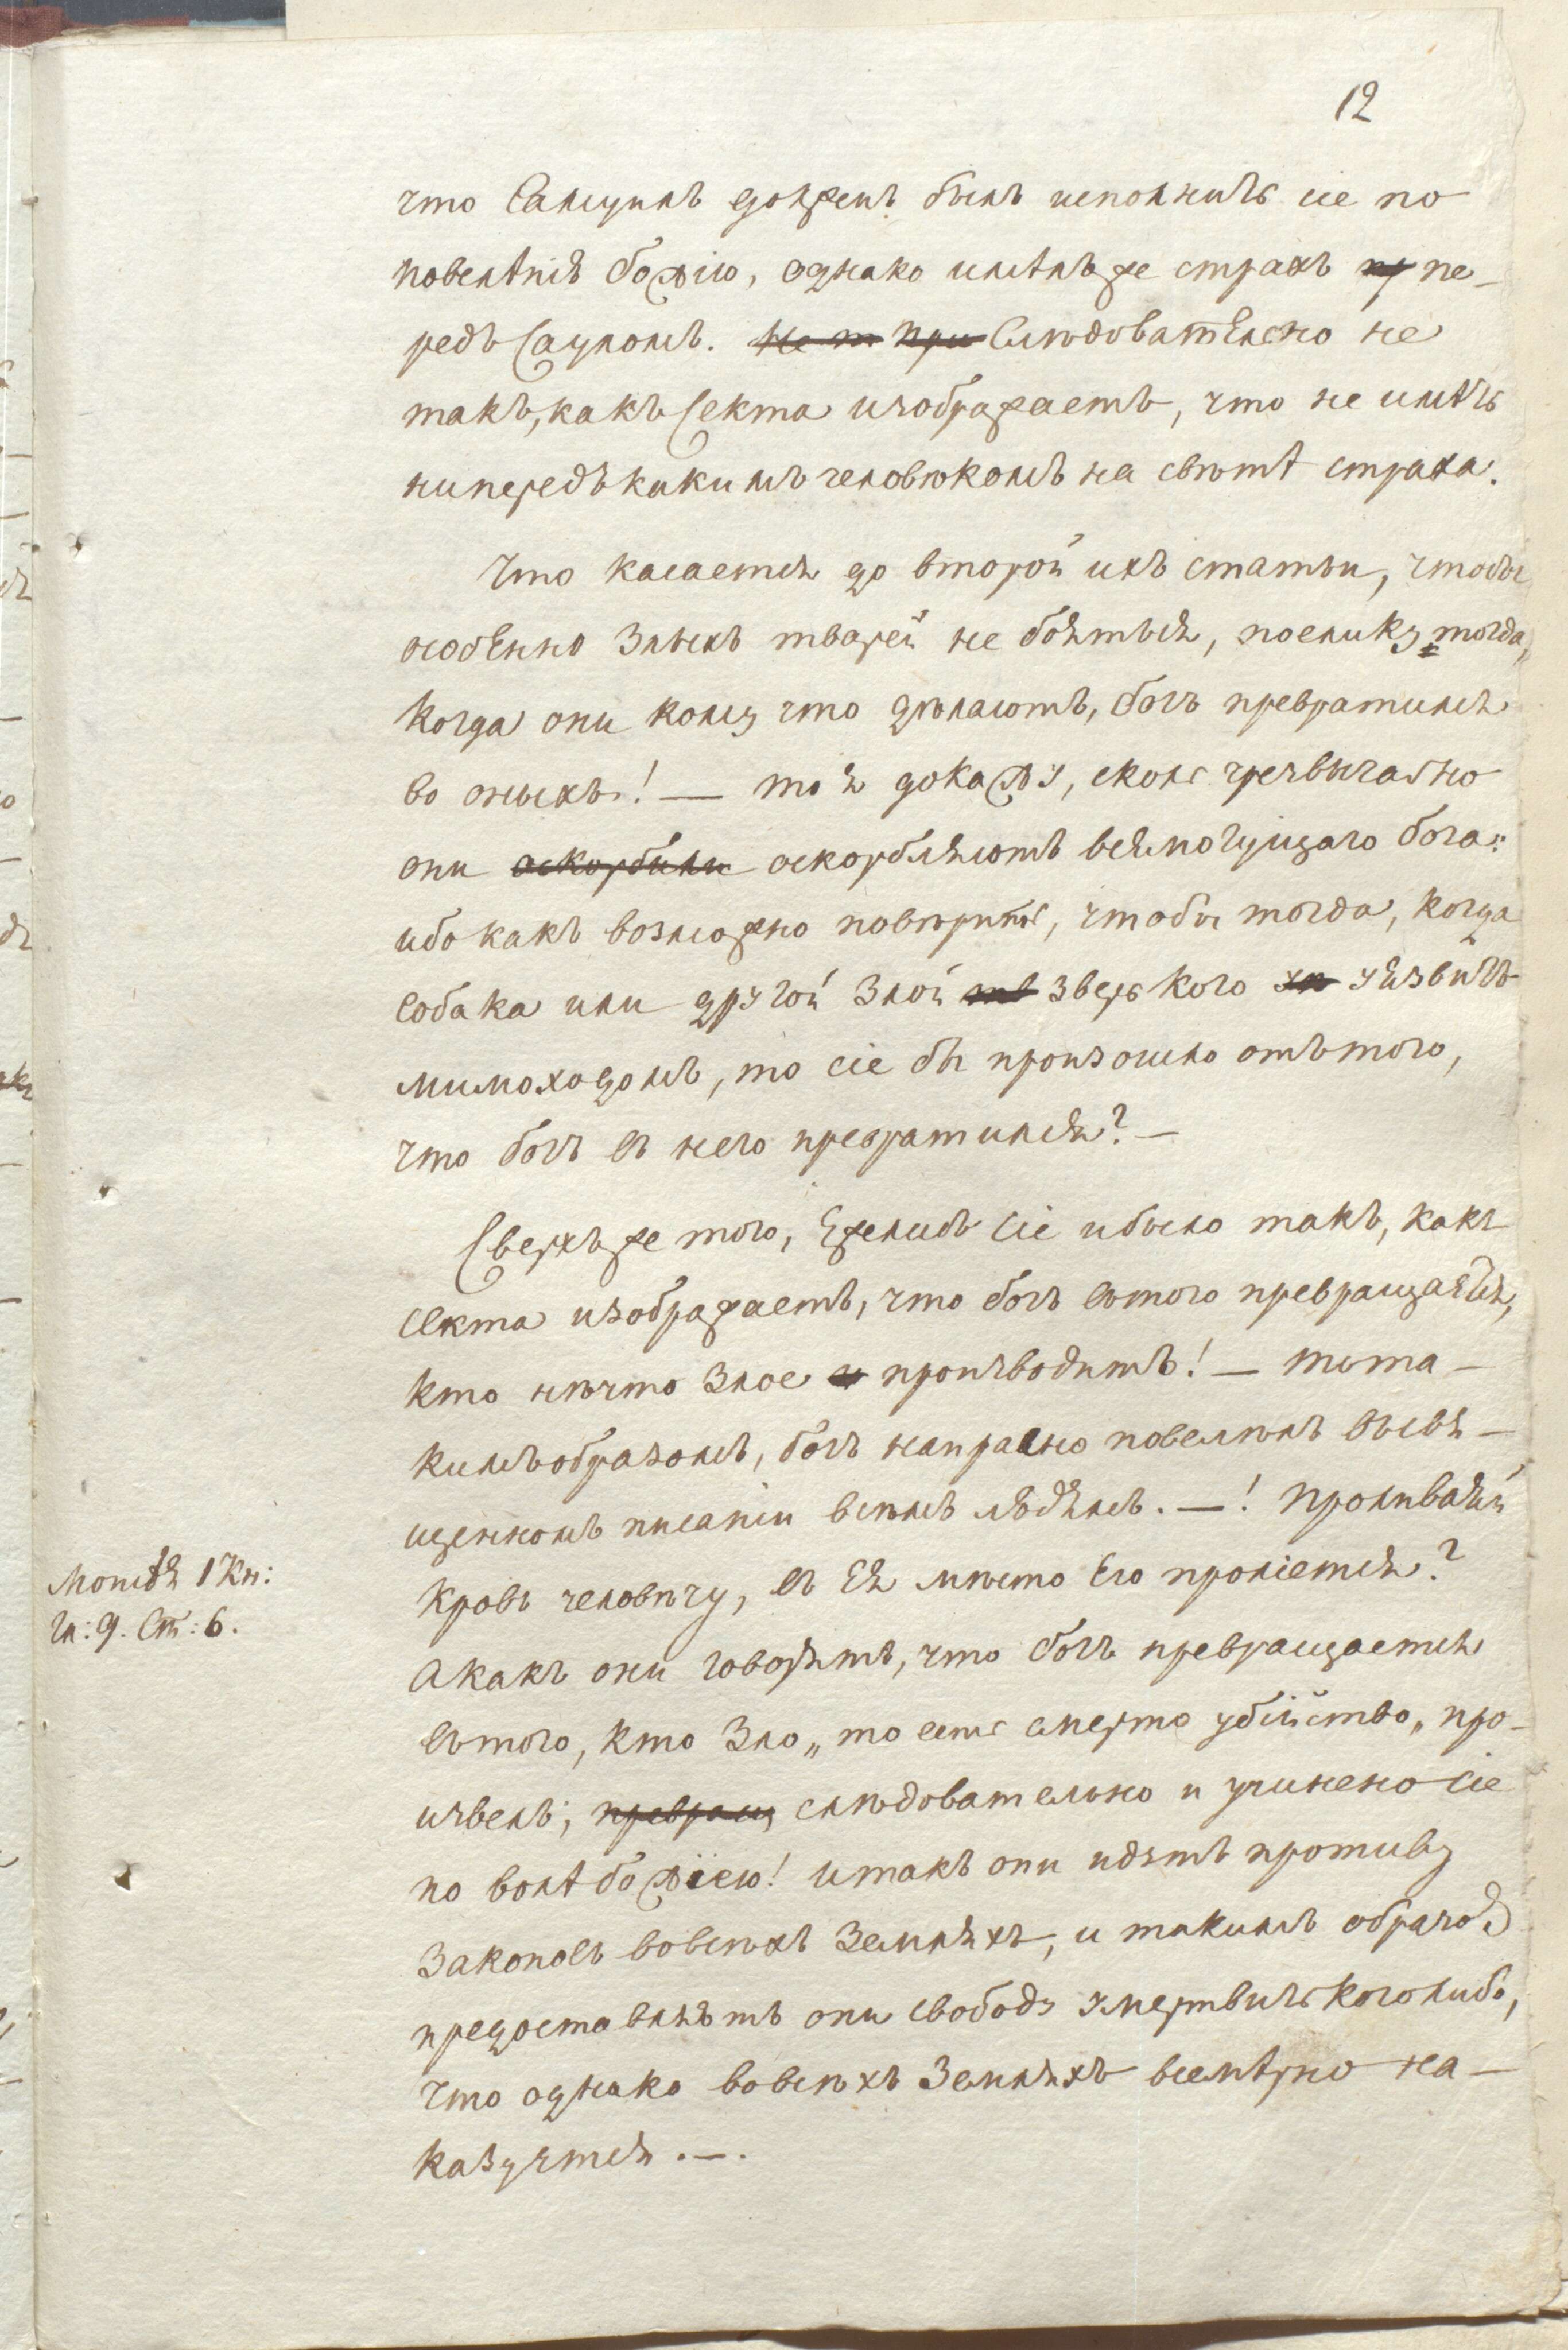 12
что Самуилъ долженъ былъ исполнить сіе по
повелѣнія божію, однако имѣлъ же страхъ пр пе-
редъ Сауломъ. Не т При Слѣдовательно не
такъ, какъ Секта изображаетъ, что не имѣть
ни передъ какимъ человѣкомъ на свѣтѣ страха.
Что касается до второй ихъ статьи, чтобы
особенно Злыхъ тварей не бояться, поелику тогда,
когда они кому что дѣлаютъ, богъ превратился
во оныхъ! — то я докажу, сколь чрезвычайно
они оскорбили оскорбляютъ всемогущаго бога:
ибо какъ возможно повѣрить, чтобы тогда, когда
собака или другой Злой тв зверь кого уязвитъ
мимоходомъ, то сіе бы произошло отъ того,
что богъ въ него превратился? —
Сверхъ же того, Ежелибъ сіе и было такъ, какъ
секта изображаетъ, что богъ въ того превращается,
кто нѣчто Злое и производитъ! — то та-
кимъ образомъ, богъ напрасно повелѣлъ въ свя-
щенномъ писаніи всѣмъ людямъ. —! Проливаяй
кровь человѣчу, въ Ея мѣсто Его проліется?
Моисея 1 Кн:
Гл: 9. Ст: 6.
А какъ они говорятъ, что богъ превращается
въ того, кто Зло „ то есть смерто убійство „ про-
извелъ; превращ следовательно и учинено сіе
по волѣ божіею! и такъ они идутъ противу
Законовъ во всѣхъ Земляхъ, и такимъ образом
предоставляютъ они свободу умертвить коголибо,
что однако во всѣхъ Земляхъ всемѣрно на-
казуется. —.